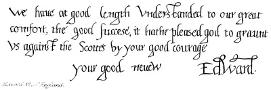 We have at good length Understanded to our great
comfort, the good success, it hathe pleased god to graunt
us against the Scottes by your good courage
your good neuew Edward.